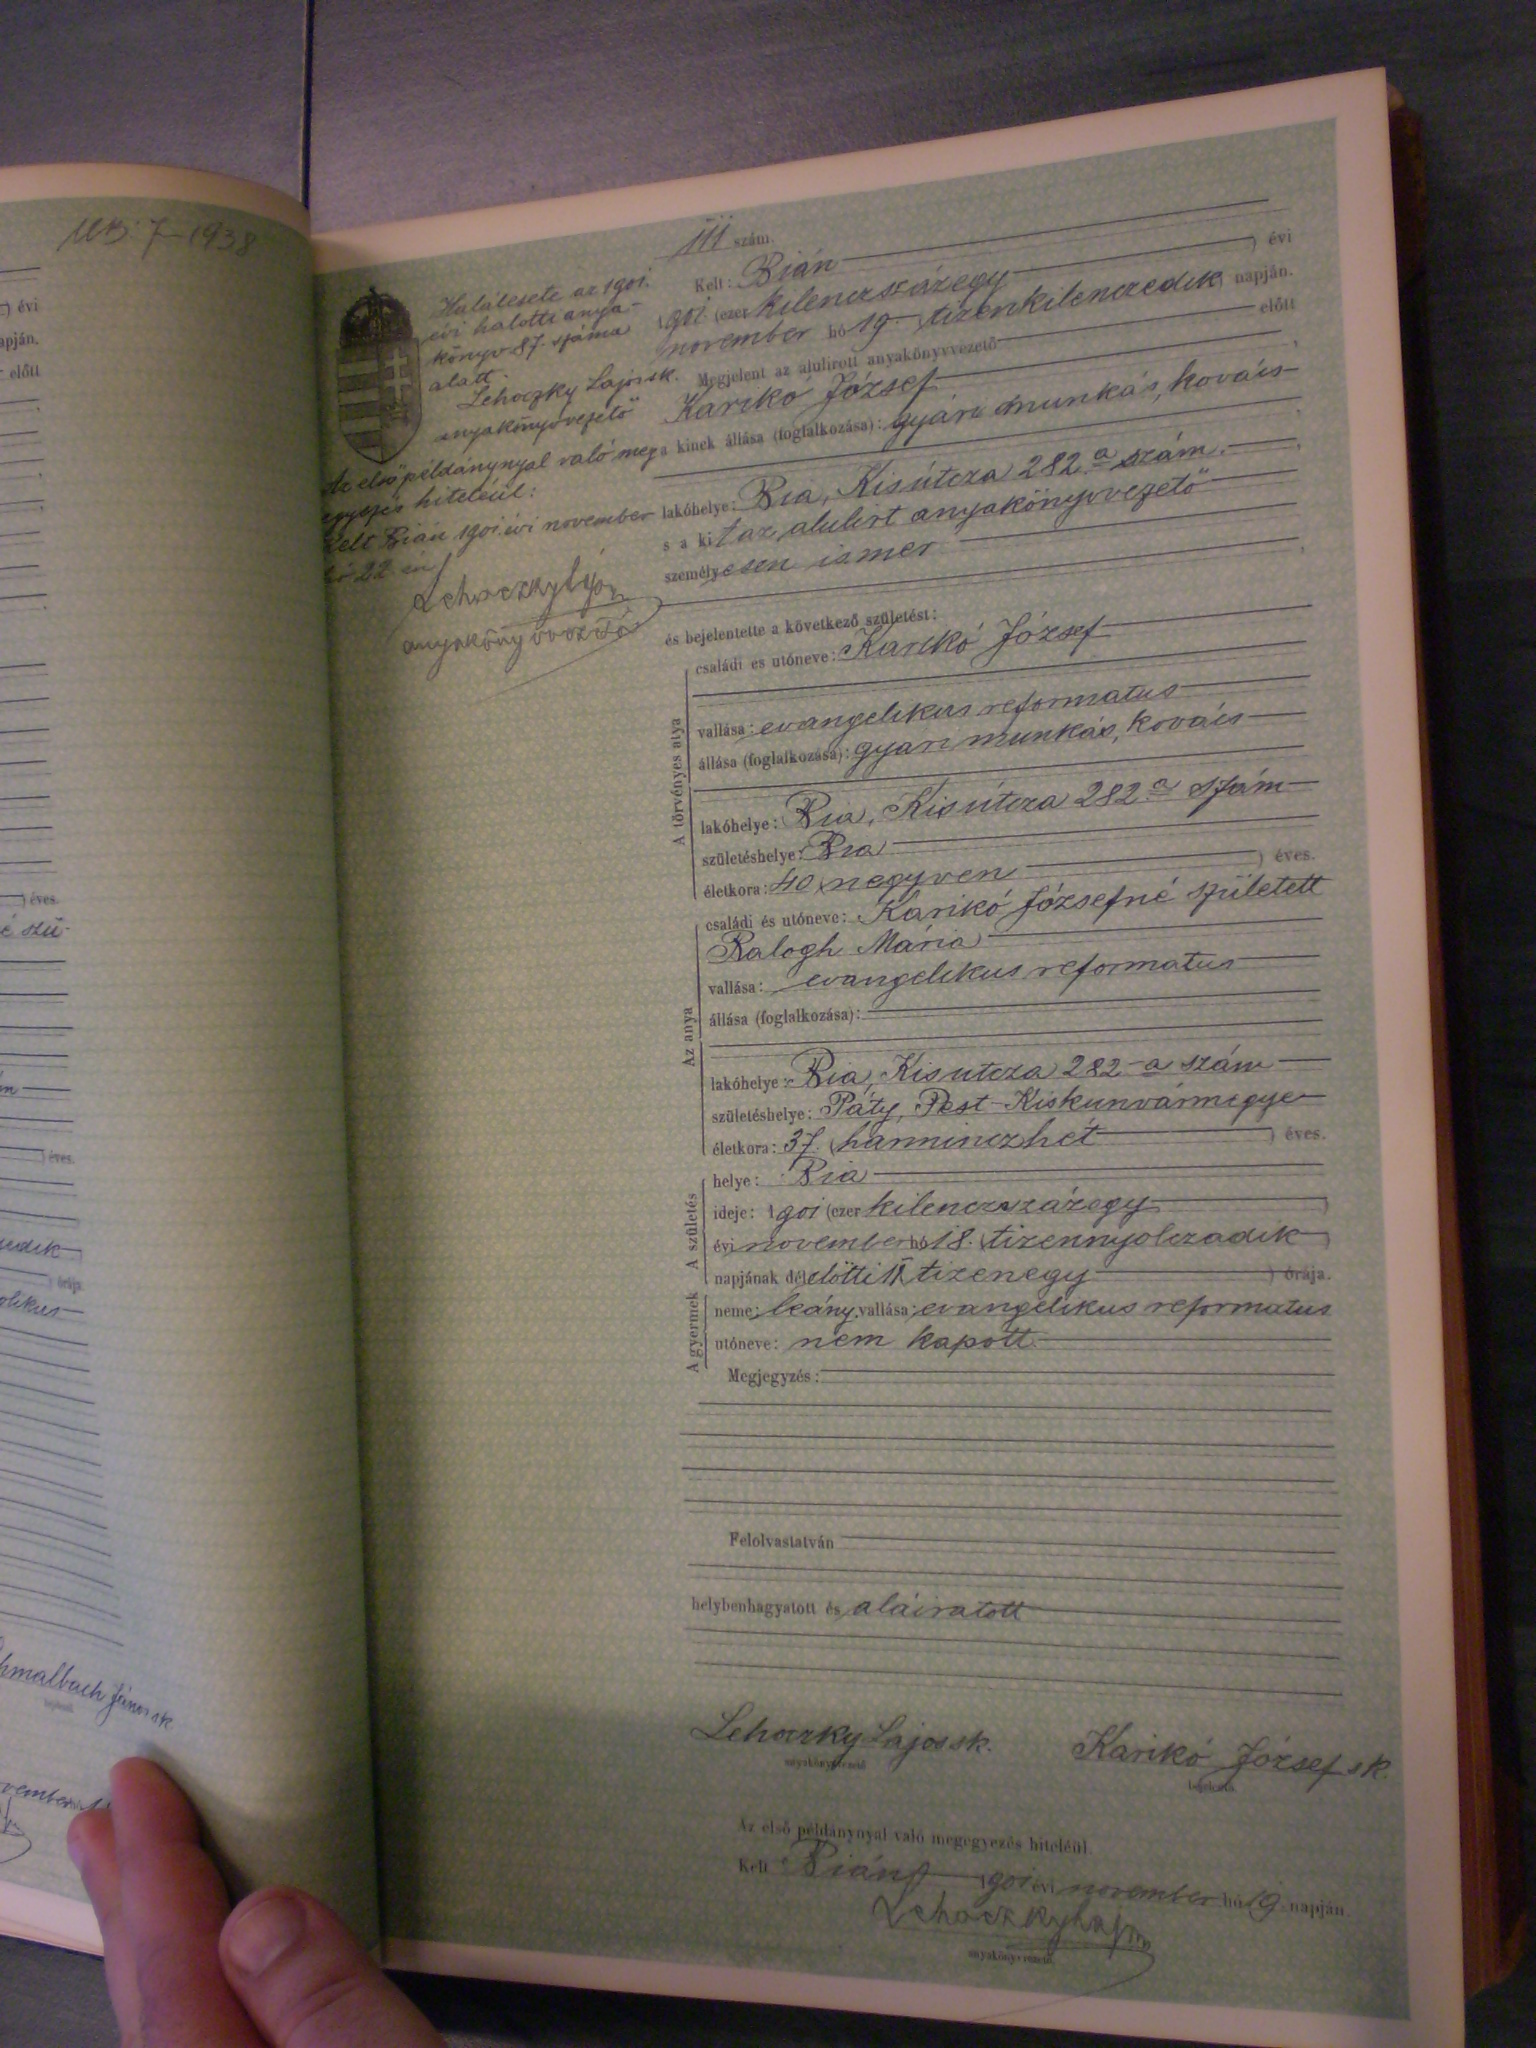 MB: 7-1938
évi
apján.
előtt
éves.
é szü-
éves.
edik
órája.
likus
hmalbach János sk
vember
111 szám.
Halálesete az 1901.
évi halotti anya-
könyv 87. száma
alatt.
Lehoczky Lajos sk.
anyakönyvvezető
Az első példánynyal való meg
egyezés hiteléül:
Kelt Bián 1901. évi november
hó 22. én
Lehoczky Lajos
anyakönyvvezető
Kelt: Bián
1901. (ezer kilenczszázegy ) évi
november hó 19. (tizenkilenczedik) napján.
Megjelent az alulirott anyakönyvvezető előtt
Karikó József
a kinek állása (foglalkozása): gyári munkás, kovács
lakóhelye: Bia, Kisútcza 282 a szám.
s a kit az alulirt anyakönyvvezető
személyesen ismer
és bejelentette a következő születést:
A törvényes atya
családi és utóneve: Karikó József
vallása: evangelikus reformatus
állása (foglalkozása): gyari munkás, kovács
lakóhelye: Bia, Kisútcza 282. a szám
születéshelye: Bia
életkora: 40 (negyven ) éves.
Az anya
családi és utóneve: Karikó Józsefné született
Balogh Mária
vallása: evangelikus reformatus
állása (foglalkozása):
lakóhelye: Bia, Kisutcza 282-a szám
születéshelye: Páty, Pest-Kiskunvármegye
életkora: 37. (harminczhét ) éves.
A születés
helye: Bia
ideje: 1901 (ezer kilenczszázegy )
évi november hó 18. (tizennyolczadik )
napjának délelőtti 11 (tizenegy ) órája.
A gyermek
neme: leány, vallása: evangelikus reformatus
utóneve: nem kapott
Megjegyzés:
Felolvastatván
helybenhagyatott és aláiratott
Lehoczky Lajos sk. Karikó József sk.
anyakönyvvezető bejelentő
Az első példánynyal való megegyezés hiteléül.
Kelt Bián 1901 évi november hó 19. napján.
Lehoczky Lajos
anyakönyvvezető